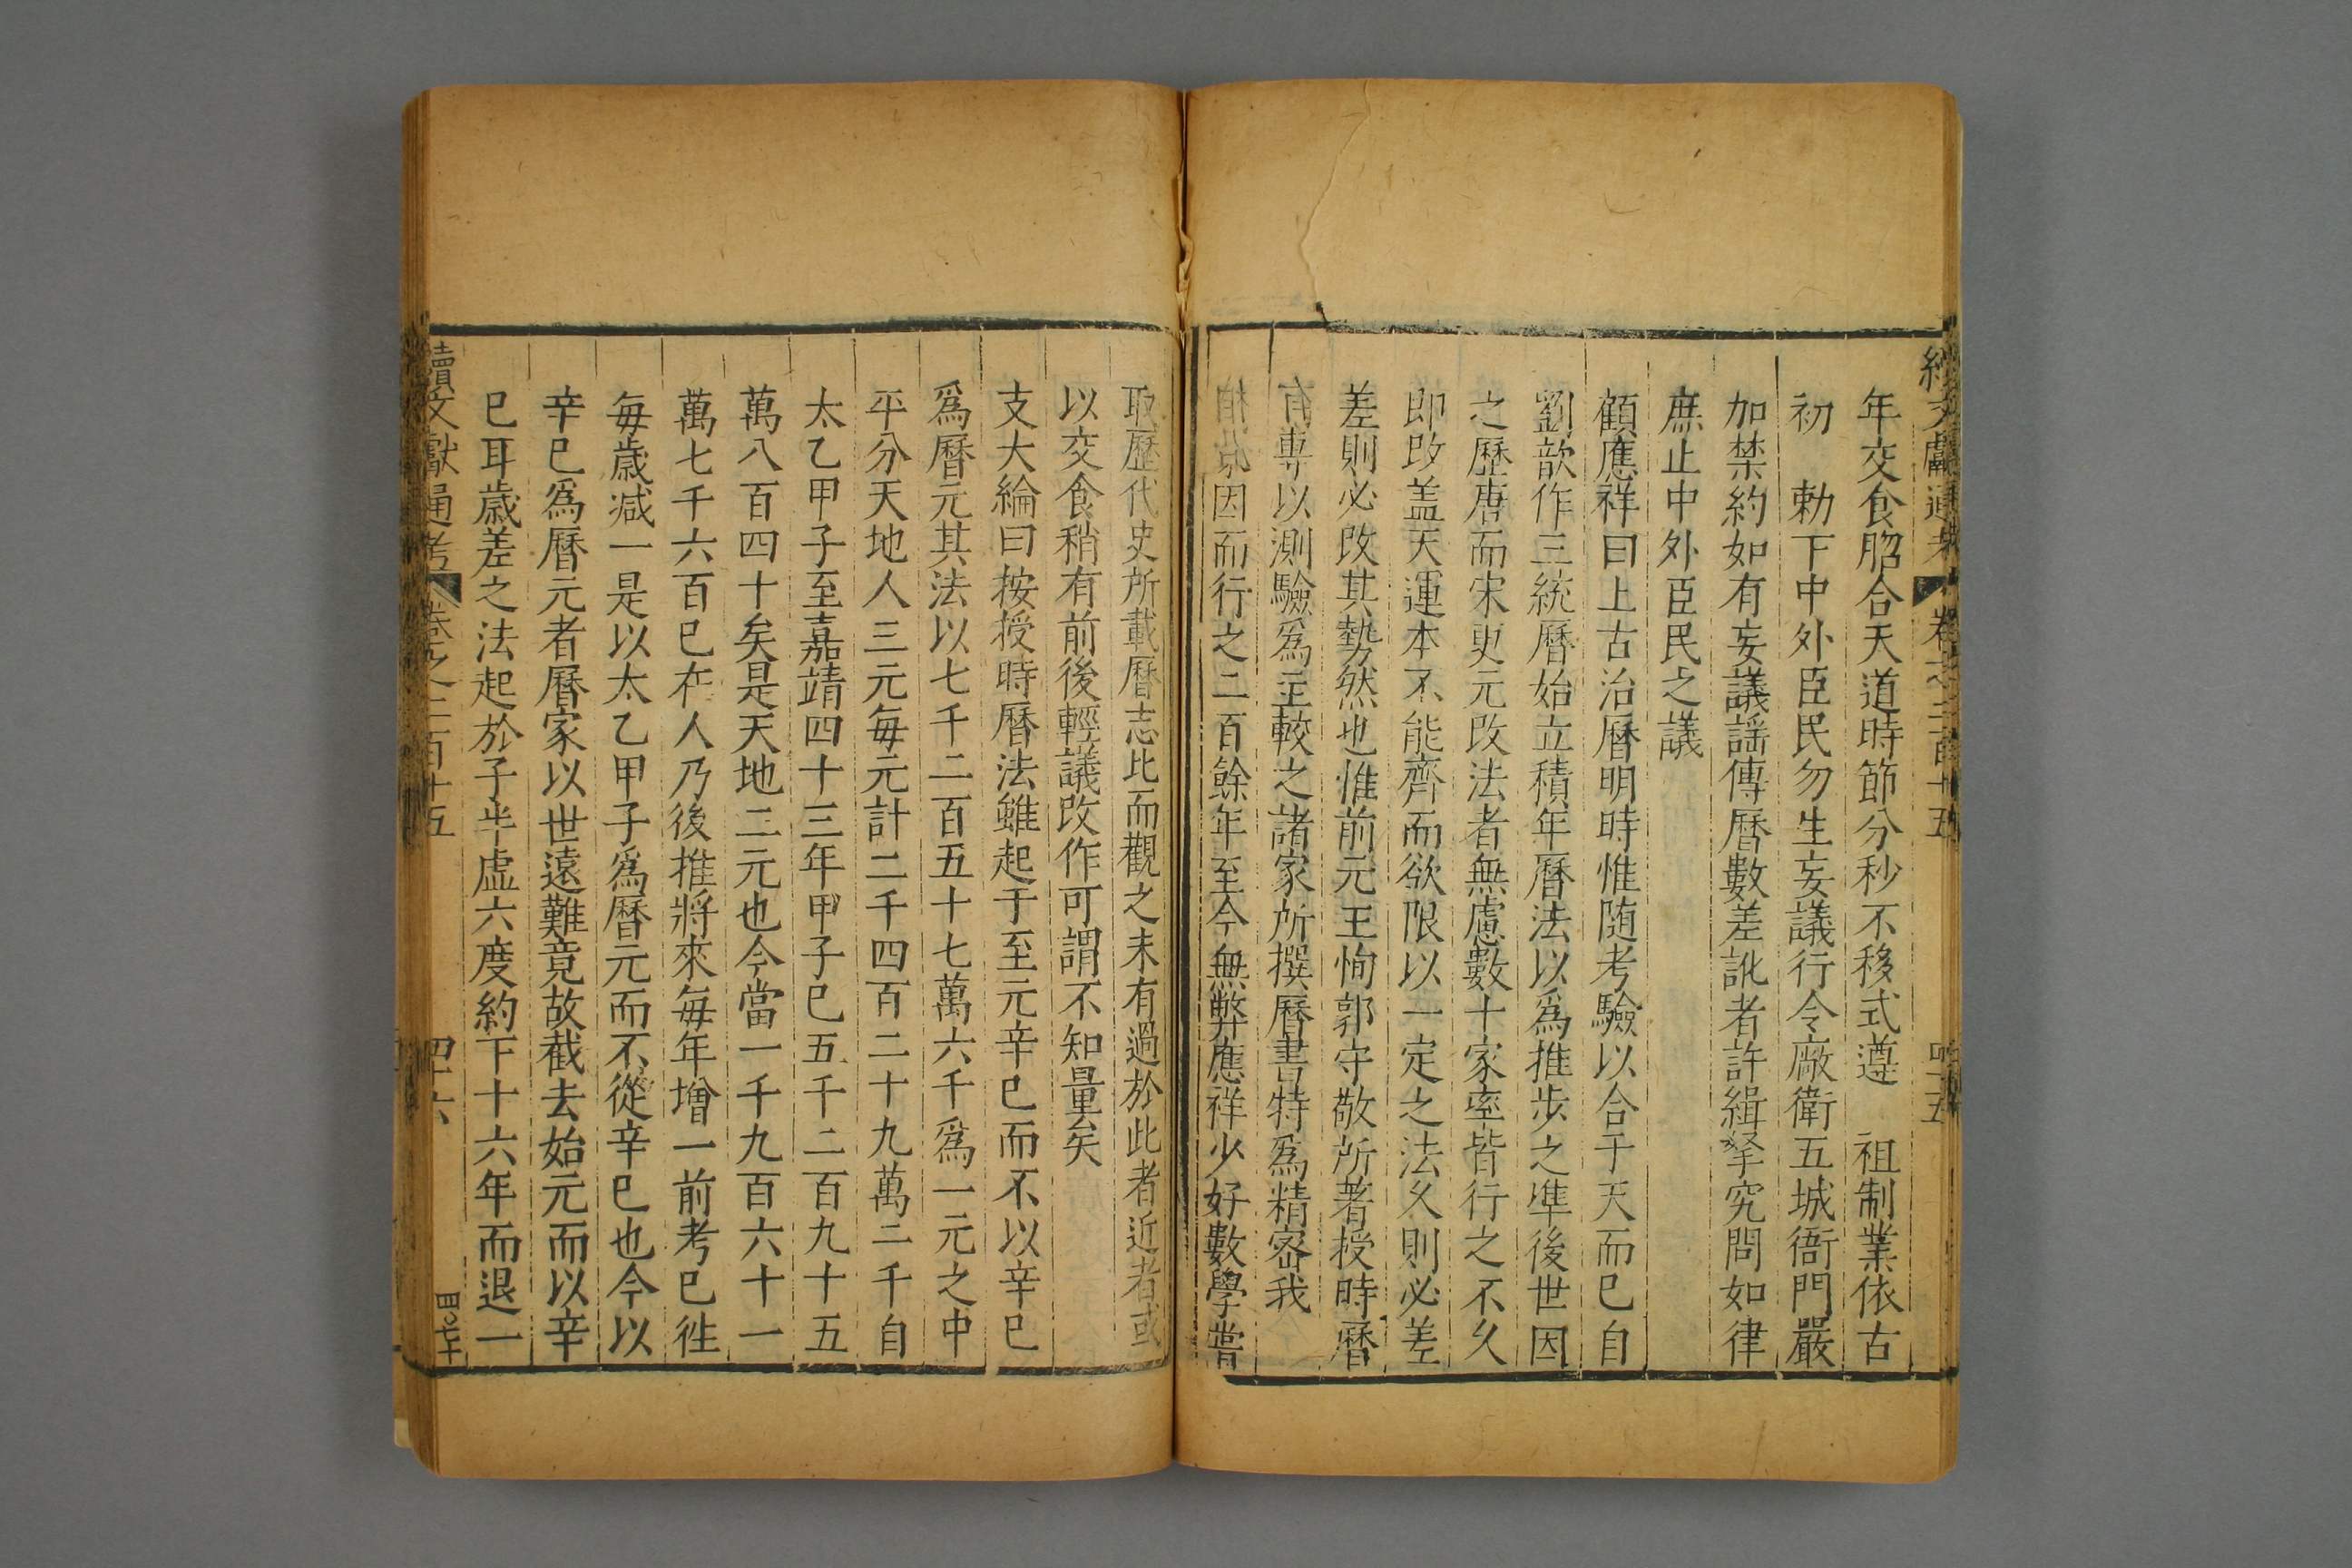 續文獻通考 卷之二百十五 四十五
年交食脗合天道時節分秒不移式遵 祖制業依古
初 勅下中外臣民勿生妄議行令廠衛五城衙門嚴
加禁約如有妄議謡傳曆數差訛者許緝拏究問如律
庶止中外臣民之議
顧應祥曰上古治曆明時惟随考驗以合于天而已自
劉歆作三統曆始立積年曆法以爲推步之準後世因
之歷唐而宋更元改法者無慮數十家率皆行之不久
即改盖天運本不能齊而欲限以一定之法久則必差
差則必改其勢然也惟前元王恂郭守敬所著授時曆
有專以測驗爲主較之諸家所撰曆書特爲精宻我
因而行之二百餘年至今無弊應祥少好數學嘗
取歷代史所載曆志比而觀之未有過於此者近者或
以交食稍有前後輕議改作可謂不知量矣
支大綸曰按授時曆法雖起于至元辛巳而不以辛巳
爲曆元其法以七千二百五十七萬六千爲一元之中
平分天地人三元每元計二千四百二十九萬二千自
太乙甲子至嘉靖四十三年甲子巳五千二百九十五
萬八百四十矣是天地二元也今當一千九百六十一
萬七千六百巳在人乃後推將來每年增一前考巳徃
每歲减一是以太乙甲子爲曆元而不從辛巳也今以
辛巳爲曆元者曆家以世遠難竟故截去始元而以辛
巳耳歲差之法起於子半虛六度約下十六年而退一
續文獻通考 卷之二百十五 四十六 四〇七十